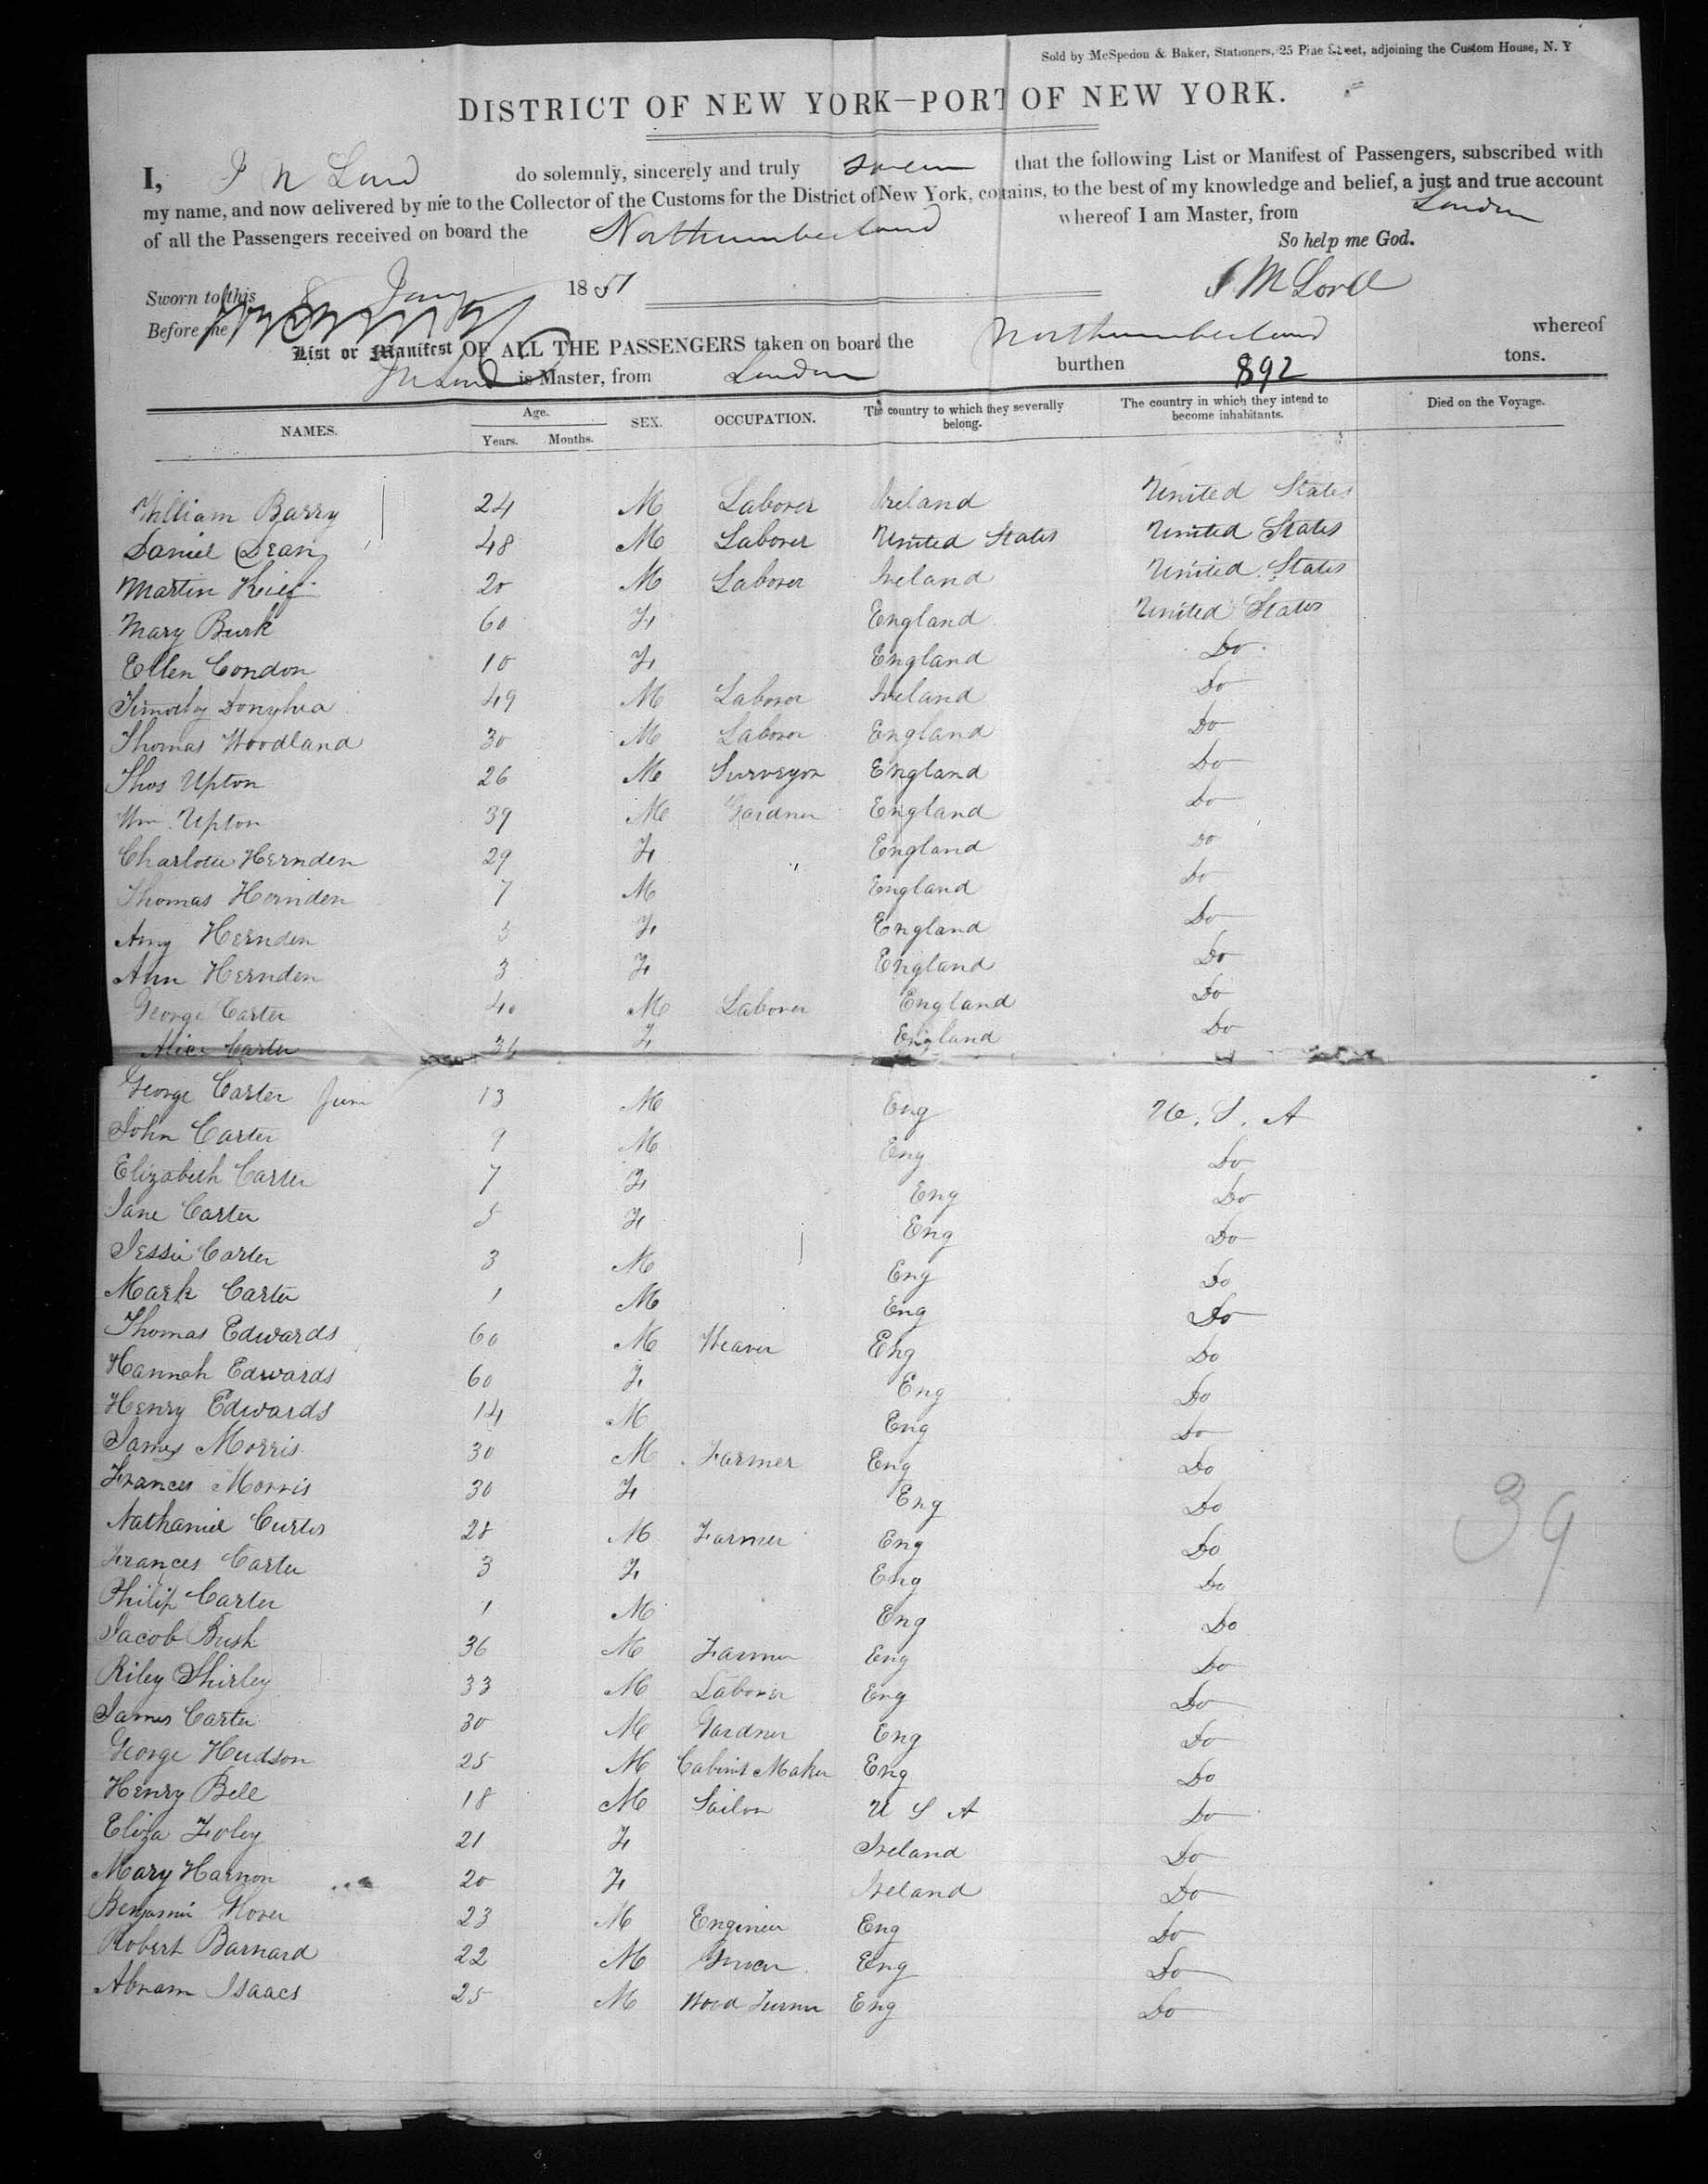 Sold by McSpedon & Baker, Stationers, 25 Pine Street, adjoining the Custom House, N. Y
DISTRICT OF NEW YORK—PORT OF NEW YORK.
I, J M Lord do solemnly, sincerely and truly swear that the following List or Manifest of Passengers, subscribed with
my name, and now delivered by me to the Collector of the Customs for the District of New York, contains, to the best of my knowledge and belief, a just and true account
of all the Passengers received on board the Northumberland whereof I am Master, from London
So help me God.
Sworn to this 8 Jany 1851 J M Lord
Before me
List or Manifest OF ALL THE PASSENGERS taken on board the Northumberland whereof
J M Lord is Master, from London burthen 892 tons.
NAMES. Age. Years. Months. SEX. OCCUPATION. The country to which they severally belong. The country in which they intend to become inhabitants. Died on the Voyage.
William Barry 24 M Laborer Ireland United States
Daniel Dean 48 M Laborer United States United States
Martin Kief 20 M Laborer Ireland United States
Mary Burk 60 F England United States
Ellen Condon 10 F England Do
Timothy Donyhea 49 M Laboror Ireland Do
Thomas Woodland 30 M Laboror England Do
Thos Upton 26 M Surveyor England Do
Wm Upton 39 M Gardner England Do
Charlotte Hernden 29 F England Do
Thomas Hernden 7 M England Do
Amy Hernden 5 F England Do
Ann Hernden 3 F England Do
George Carter 40 M Laborer England Do
Alice Carter 36 F England Do
George Carter Junr 13 M Eng U. S. A
John Carter 9 M Eng Do
Elizabeth Carter 7 F Eng Do
Jane Carter 5 F Eng Do
Jessie Carter 3 M Eng Do
Mark Carter 1 M Eng Do
Thomas Edwards 60 M Weaver Eng Do
Hannah Edwards 60 F Eng Do
Henry Edwards 14 M Eng Do
James Morris 30 M Farmer Eng Do
Frances Morris 30 F Eng Do
Nathaniel Curtis 28 M Farmer Eng Do
Frances Carter 3 F Eng Do
Philip Carter 1 M Eng Do
Jacob Bush 36 M Farmer Eng Do
Riley Shirley 33 M Laborer Eng Do
James Carter 30 M Gardner Eng Do
George Hudson 25 M Cabinet Maker Eng Do
Henry Bell 18 M Sailor U S A Do
Eliza Foley 21 F Ireland Do
Mary Harnon 20 F Ireland Do
Benjamin Glover 23 M Engineer Eng Do
Robert Barnard 22 M Eng Do
Abram Isaacs 25 M Wood Turner Eng Do
39